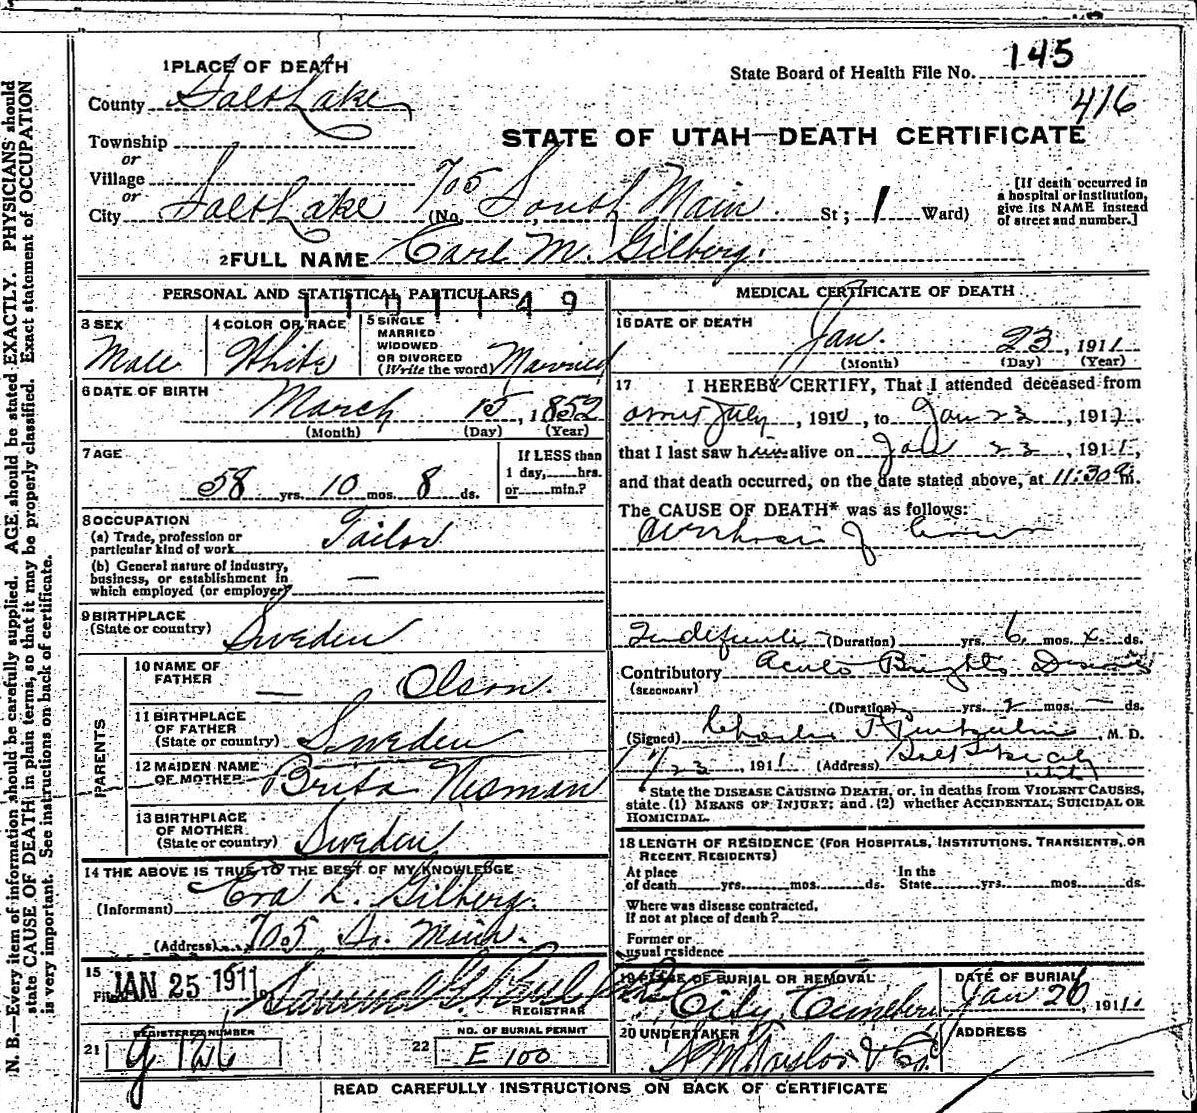 N. B.—Every item of information should be carefully supplied. AGE should be stated EXACTLY. PHYSICIANS should
state CAUSE OF DEATH in plain terms, so that it may be properly classified. Exact statement of OCCUPATION
is very important. See instructions on back of certificate.
1 PLACE OF DEATH
State Board of Health File No. 145
416
County Salt Lake
STATE OF UTAH—DEATH CERTIFICATE
Township
or
Village
or
City Salt Lake (No. 705 South Main St; 1 Ward)
[If death occurred in
a hospital or institution,
give its NAME instead
of street and number.]
2 FULL NAME Carl M. Gilberg.
PERSONAL AND STATISTICAL PARTICULARS
3 SEX
Male
4 COLOR OR RACE
White
5 SINGLE
MARRIED
WIDOWED
OR DIVORCED
(Write the word) Married
6 DATE OF BIRTH
March 15, 1852
(Month) (Day) (Year)
7 AGE
58 yrs. 10 mos. 8 ds.
If LESS than
1 day, hrs.
or min.?
8 OCCUPATION
(a) Trade, profession or
particular kind of work Tailor
(b) General nature of industry,
business, or establishment in
which employed (or employer) —
9 BIRTHPLACE
(State or country) Sweden
PARENTS
10 NAME OF
FATHER — Olson.
11 BIRTHPLACE
OF FATHER
(State or country) Sweden
12 MAIDEN NAME
OF MOTHER Brita Nisman
13 BIRTHPLACE
OF MOTHER
(State or country) Sweden
14 THE ABOVE IS TRUE TO THE BEST OF MY KNOWLEDGE
(Informant) Eva L. Gilberg.
(Address) 705 So. Main.
15
Filed JAN 25 1911
REGISTRAR
REGISTERED NUMBER
21
NO. OF BURIAL PERMIT
22 E 100
MEDICAL CERTIFICATE OF DEATH
16 DATE OF DEATH
Jan. 23, 1911
(Month) (Day) (Year)
17 I HEREBY CERTIFY, That I attended deceased from
July, 1910, to Jan 23, 1911,
that I last saw him alive on Jan 23, 1911,
and that death occurred, on the date stated above, at 11:30 a. m.
The CAUSE OF DEATH* was as follows:
Cirrhosis of Liver
Indefinite (Duration) yrs. 6 mos. x ds.
Contributory Acute Brights Disease
(SECONDARY)
(Duration) yrs. 2 mos. — ds.
(Signed) Charles, M. D.
1/23, 1911 (Address) Salt Lake City
Utah
*State the DISEASE CAUSING DEATH, or, in deaths from VIOLENT CAUSES,
state (1) MEANS OF INJURY; and (2) whether ACCIDENTAL, SUICIDAL OR
HOMICIDAL.
18 LENGTH OF RESIDENCE (FOR HOSPITALS, INSTITUTIONS, TRANSIENTS, OR
RECENT RESIDENTS)
At place
of death yrs. mos. ds.
In the
State yrs. mos. ds.
Where was disease contracted,
if not at place of death?
Former or
usual residence
19 PLACE OF BURIAL OR REMOVAL
City Cemetery
DATE OF BURIAL
Jan 26, 1911.
20 UNDERTAKER
S. M. Taylor & Co.
ADDRESS
READ CAREFULLY INSTRUCTIONS ON BACK OF CERTIFICATE